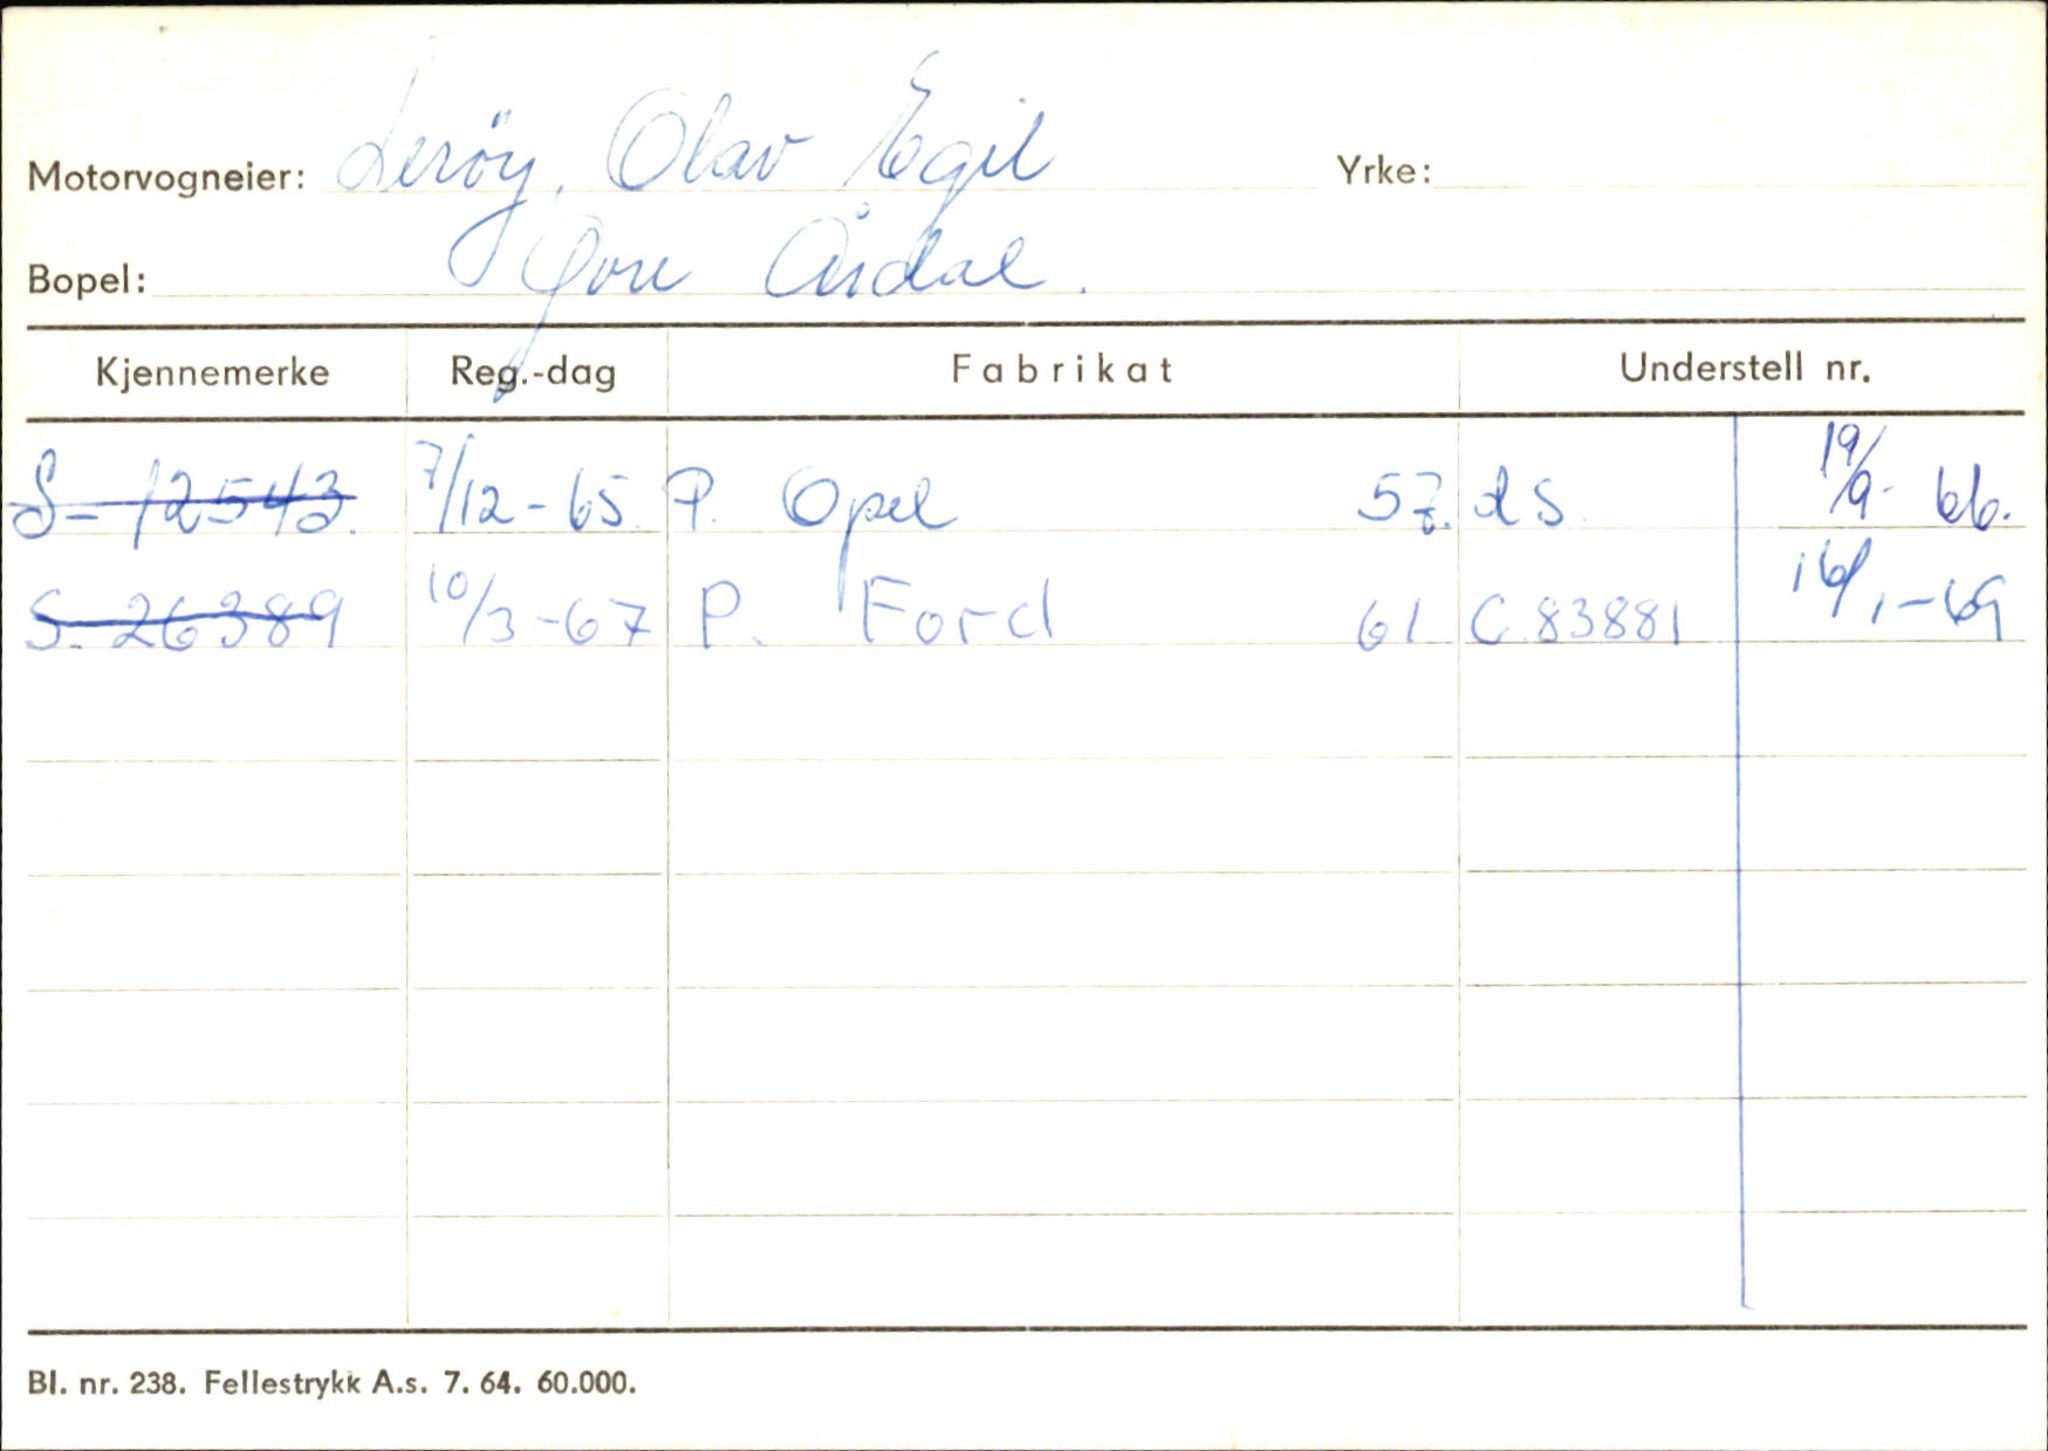 Motorvogneier: Leröy, Olav Egil Yrke:
Bopel: Øvre Årdal.
Kjennemerke Reg.-dag Fabrikat Understell nr.
S-12543. 7/12-65. P. Opel 57. ds. 19/9-66.
S-26389 10/3-67 P. Ford 61 C.83881 16/1-69
Bl. nr. 238. Fellestrykk A.s. 7. 64. 60.000.